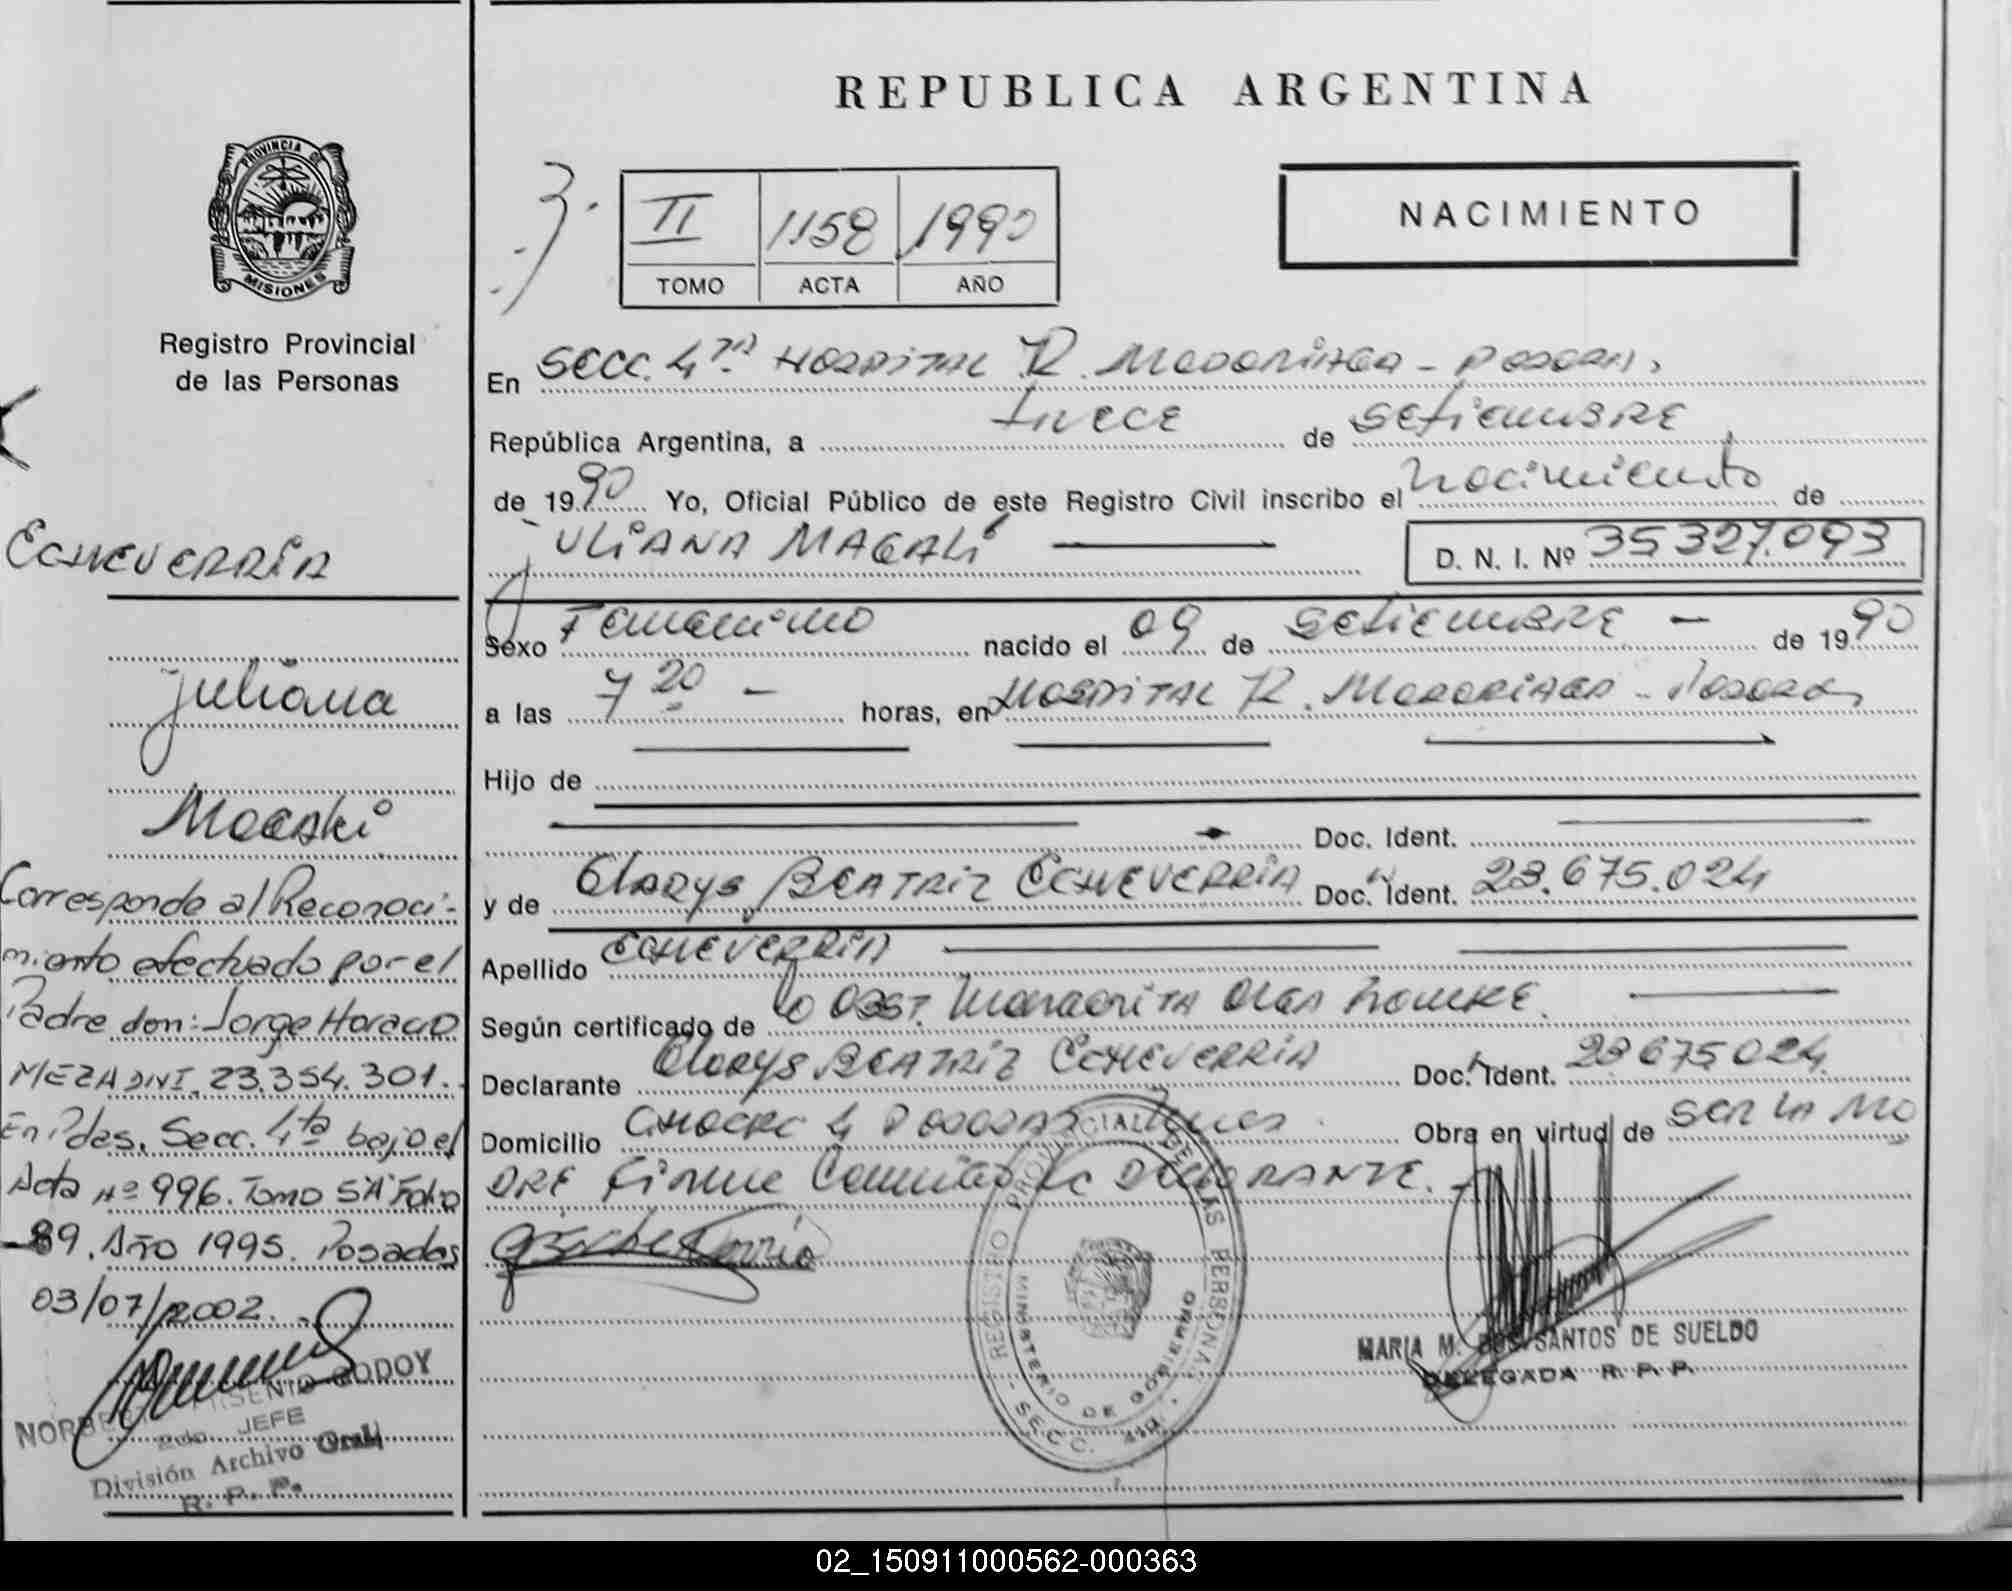 REPUBLICA ARGENTINA
PROVINCIA DE MISIONES
Registro Provincial
de las Personas
II 1158 1990
TOMO ACTA AÑO
NACIMIENTO
En SECC. 4ta HOSPITAL R. MADARIAGA - POSADAS,
República Argentina, a TRECE de SETIEMBRE
de 1990 Yo, Oficial Público de este Registro Civil inscribo el Nacimiento de
JULIANA MAGALI D. N. I. Nº 35327.093
Sexo Femenino nacido el 09 de SETIEMBRE - de 1990
a las 7 20 - horas, en HOSPITAL R. MADARIAGA - Posadas
Hijo de
Doc. Ident.
y de Gladys BEATRIZ ECHEVERRIA Doc. Ident. 23.675.024
Apellido ECHEVERRIA
Según certificado de OBST. MARGARITA OLGA
Declarante Gladys BEATRIZ ECHEVERRIA Doc. Ident. 23675024
Domicilio CHACRA 4 POSADAS Obra en virtud de SER LA MA
DRE firma LA DECLARANTE.
REGISTRO PROVINCIAL DE LAS PERSONAS
MINISTERIO DE GOBIERNO
SECC. 4ta.
MARIA M. DOS SANTOS DE SUELDO
DELEGADA R. P. P.
ECHEVERRIA
Juliana
Magali
Corresponde al Reconoci-
miento efectuado por el
Padre don: Jorge Horacio
MEZA DNI. 23.354.301.
En Pdas. Secc. 4ta bajo el
Acta Nº 996. Tomo 5"A" Folio
89. Año 1995. Posadas
03/07/2002.
GODOY
2do. JEFE
División Archivo Gral
R. P. P.
02_150911000562-000363